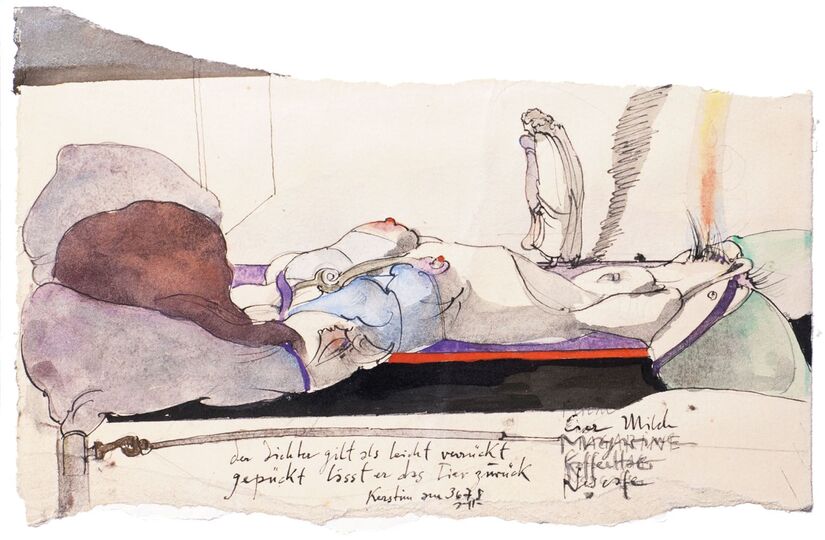 der Dichter gilt als leicht verrückt
gepückt lässt er das Tier zurück
Kerstin am
Eier Milch
MAGARINE
Nescafe